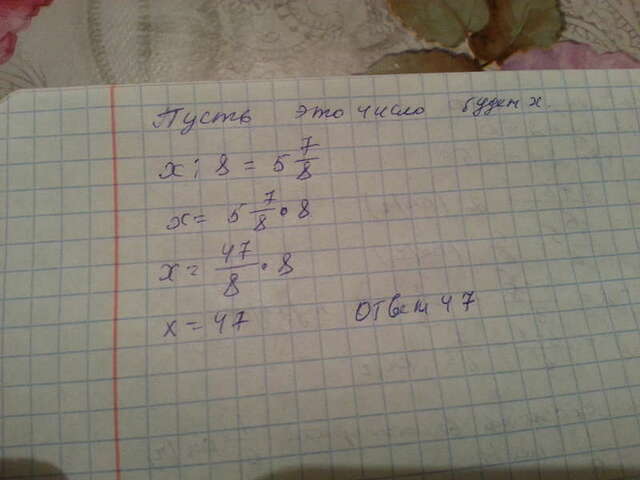 Пусть это число будет х.
х : 8 = 5 7/8
х = 5 7/8 • 8
х = 47/8 • 8
х = 47
Ответ 47